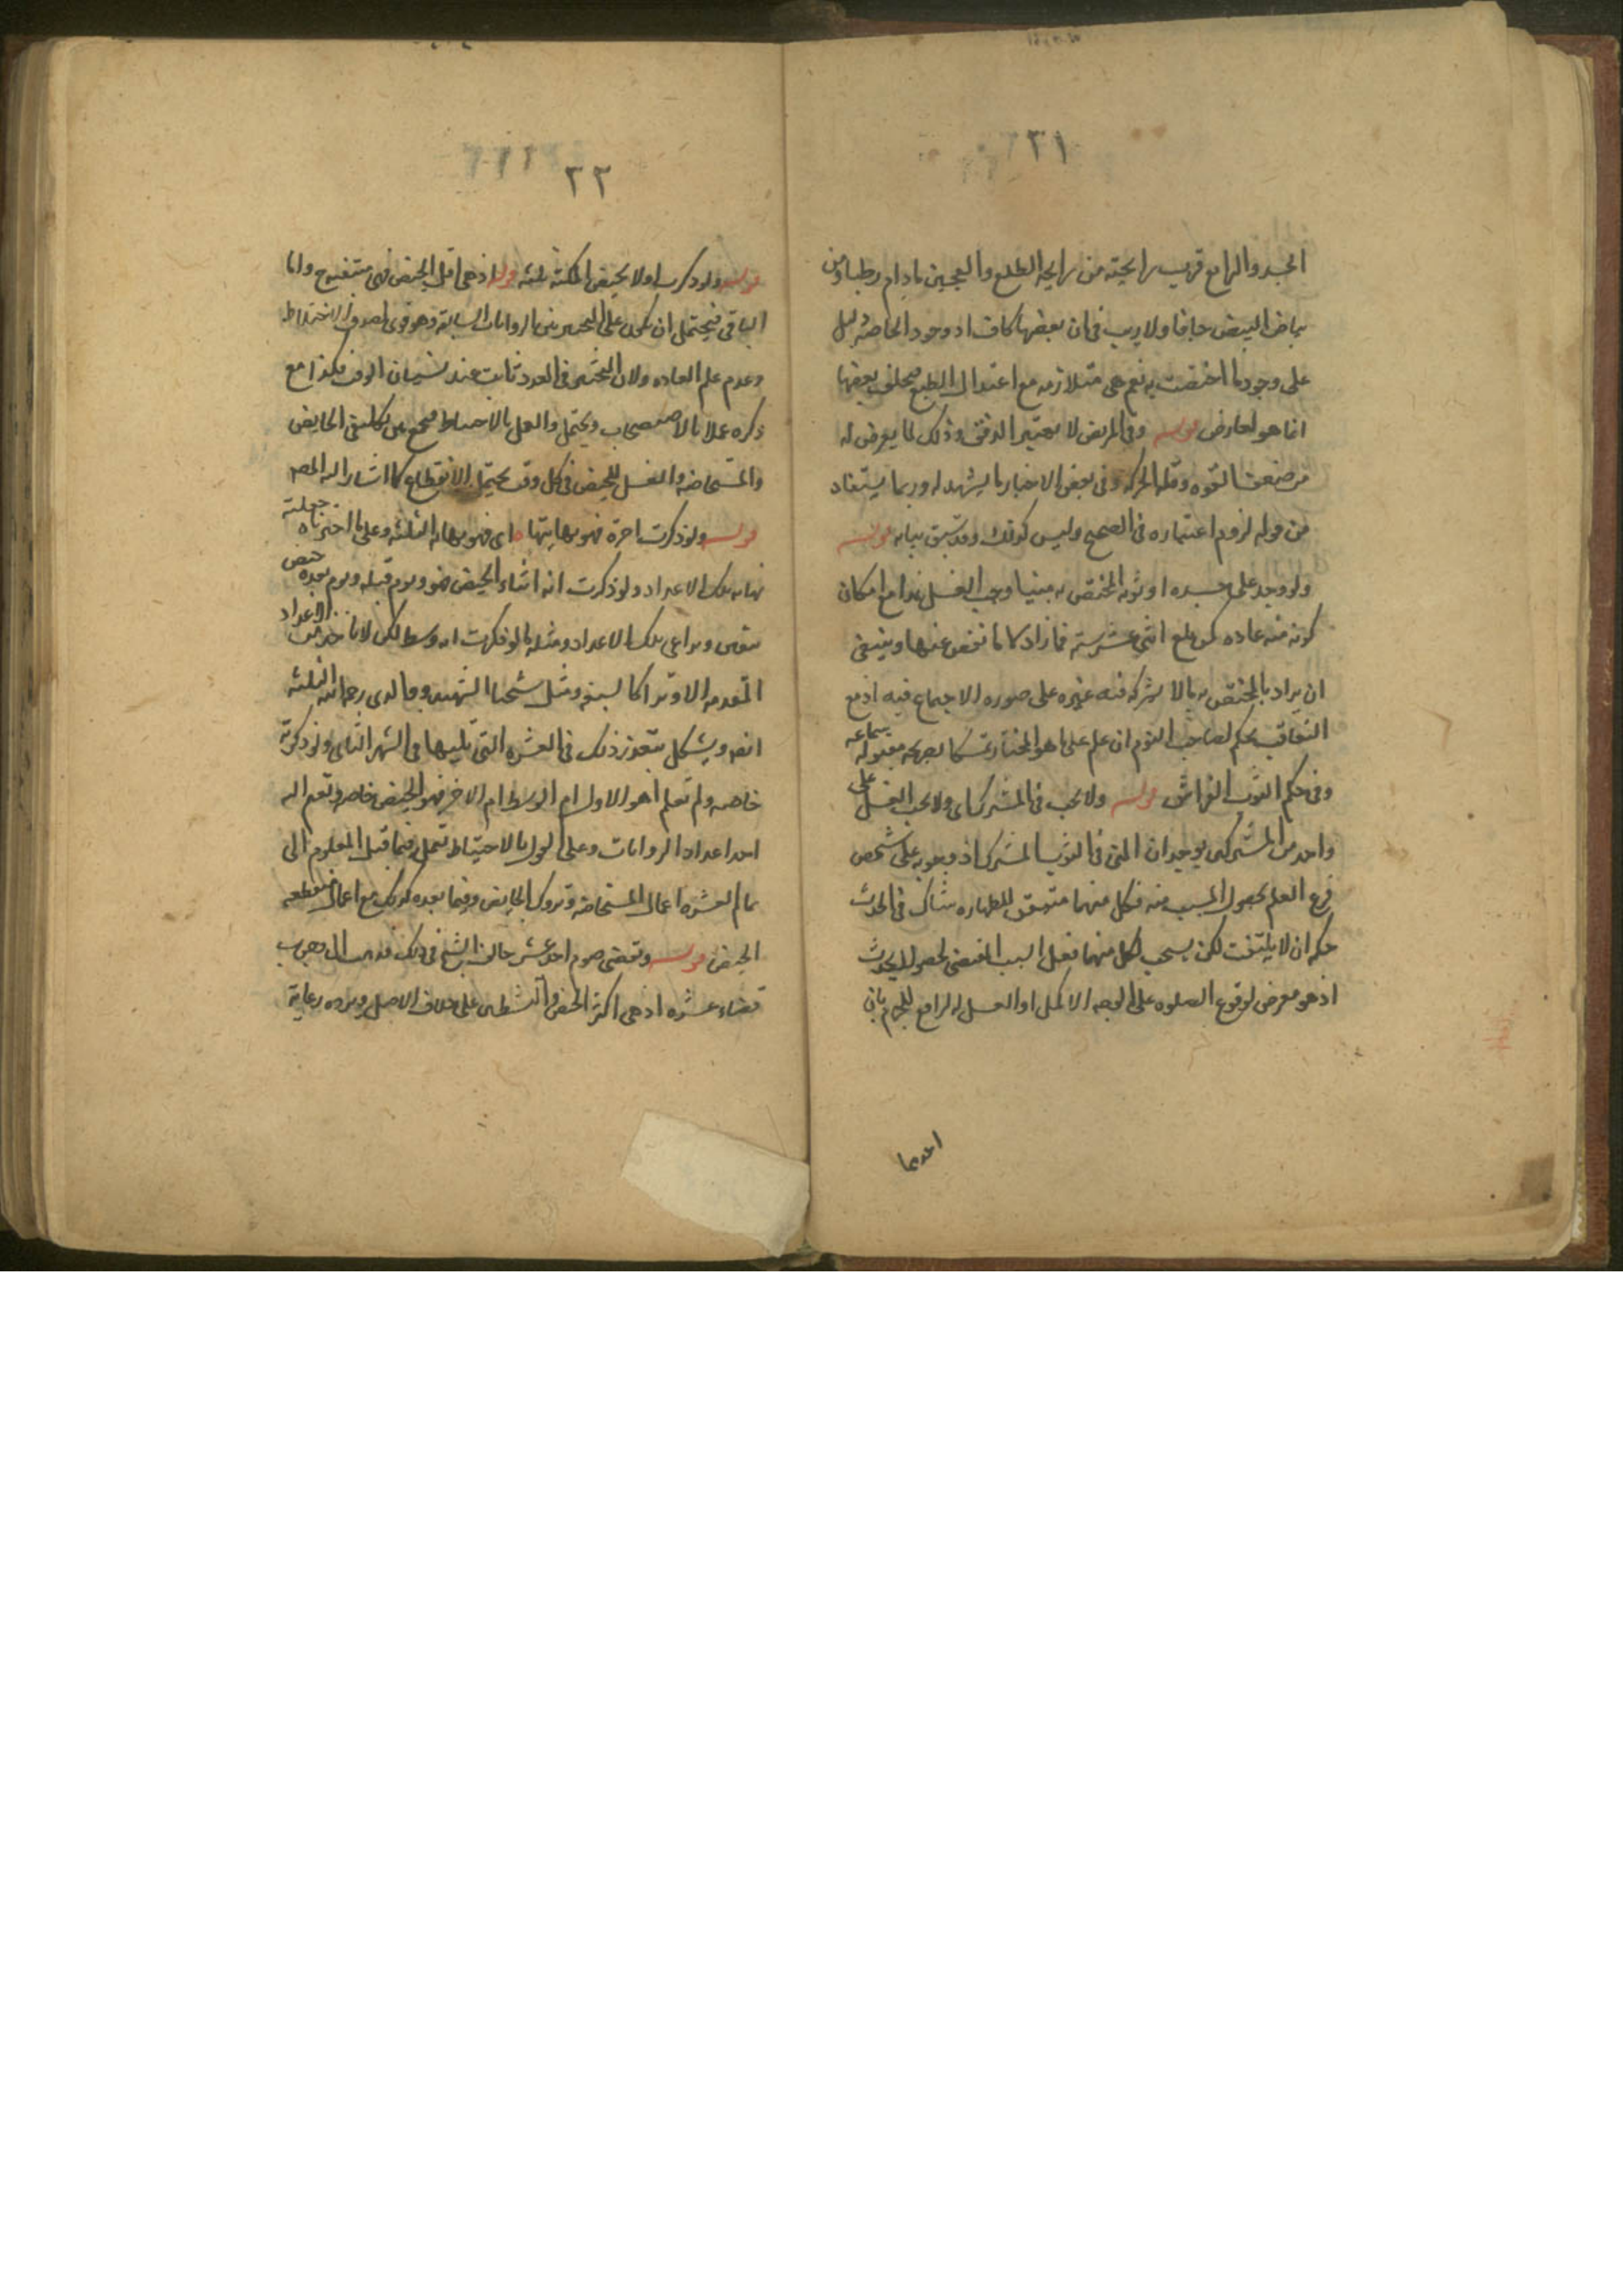 ٢١
الجسد والرابع قريب رايحته من رايحة الطلع والعجين مادام رطبا ومن
بياض البيض جافا ولا ريب في ان بعضها كاف اذ وجود الخاصة دليل
على وجود ما اختصت به نعم هي متلازمة مع اعتدال الطبع فتخلف بعضها
انما هو لعارض قوله وفي المريض لا يعتبر الدفق وذلك لما يعرض له
من ضعف القوه وقله الحركه وفي بعض الاخبار ما يشهد له وربما يستفاد
من قوله لزوم اعتباره في الصحيح وليس كذلك وقد سبق بيانه قوله
ولو وجد على جسده او ثوبه المختص به منيا وجب الغسل هذا مع امكان
كونه منه عاده كمن بلغ اثنتي عشر سنة فما زاد لا ما نقص عنها وينبغي
ان يراد بالمختص به ما لا يشركه فيه غيره على صوره الاجتماع فيه اذ مع
التعاقب يحكم لصاحب النوم ان علم على ما هو المختار تمسكا بصريحه مقبوله سماعه
وفي حكم الثوب الفراش قوله ولا يجب في المشترك اي ولا يجب الغسل على
واحد من المشتركين بوجدان المني في الثوب المشترك اذ وجوبه على شخص
فرع العلم بحصول المسبب منه فكل منهما متيقن للطهاره شاك في الحدث
حكمه ان لا يلتفت لكن يستحب لكل منهما فعل السبب المقتضي لحصول الحدث
اذ هو معرض لوقوع الصلوه على الوجه الاكمل او الغسل الرافع للجزم بان
احدهما
٢٢
قوله ولو ذكرت اول الحيض اكملته ثلثه قوله اذ هي اقل الحيض فهي متيقنة واما
الباقي فيحتمل ان تكون على التخيير بين الروايات السابقة وهو قوي لصدق الاختلاط
وعدم علم العاده ولان التخيير في العدد ثابت عند نسيان الوقت فكذا مع
ذكره عملا بالاستصحاب ويحتمل والعمل بالاحتياط فتجمع بين تكليفي الحايض
والمستحاضه والغسل للحيض في كل وقت يحتمل الانقطاع كما اشار اليه المص
قوله ولو ذكرت اخره فهو نهايتها اي فهو نهاية الثلثه وعلى ما اخترناه جعلته
نهايه تلك الاعداد ولو ذكرت انه اثناء الحيض فهو ويوم قبله ويوم بعده حيض
بيقين وتراعي تلك الاعداد ومثله ما لو ذكرت انه وسط لكن لا تاخذ من الاعداد
المتقدمه الا وترا كالسبعه ومثل شيخنا الشهيد ووالدي رحمه الله الثلثه
انفه ويشكل بتعذر ذلك في العشره التي تليها في الشهر الثاني ولو ذكرته
خاصه ولم تعلم اهو الاول ام الوسط ام الاخر فهو الحيض خاصه وتضم اليه
احد اعداد الروايات وعلى القول بالاحتياط تعمل فيما قبل المعلوم الى
تمام العشره اعمال المستحاضه وتروك الحايض وفيما بعده كذلك مع اعمال منقطعه
الحيض قوله وتقضي صوم احد عشر خالف الشيخ في ذلك فذهب الى وجوب
قضاء عشره اذ هي اكثر الحيض والتشطير على خلاف الاصل ويرده رعاية